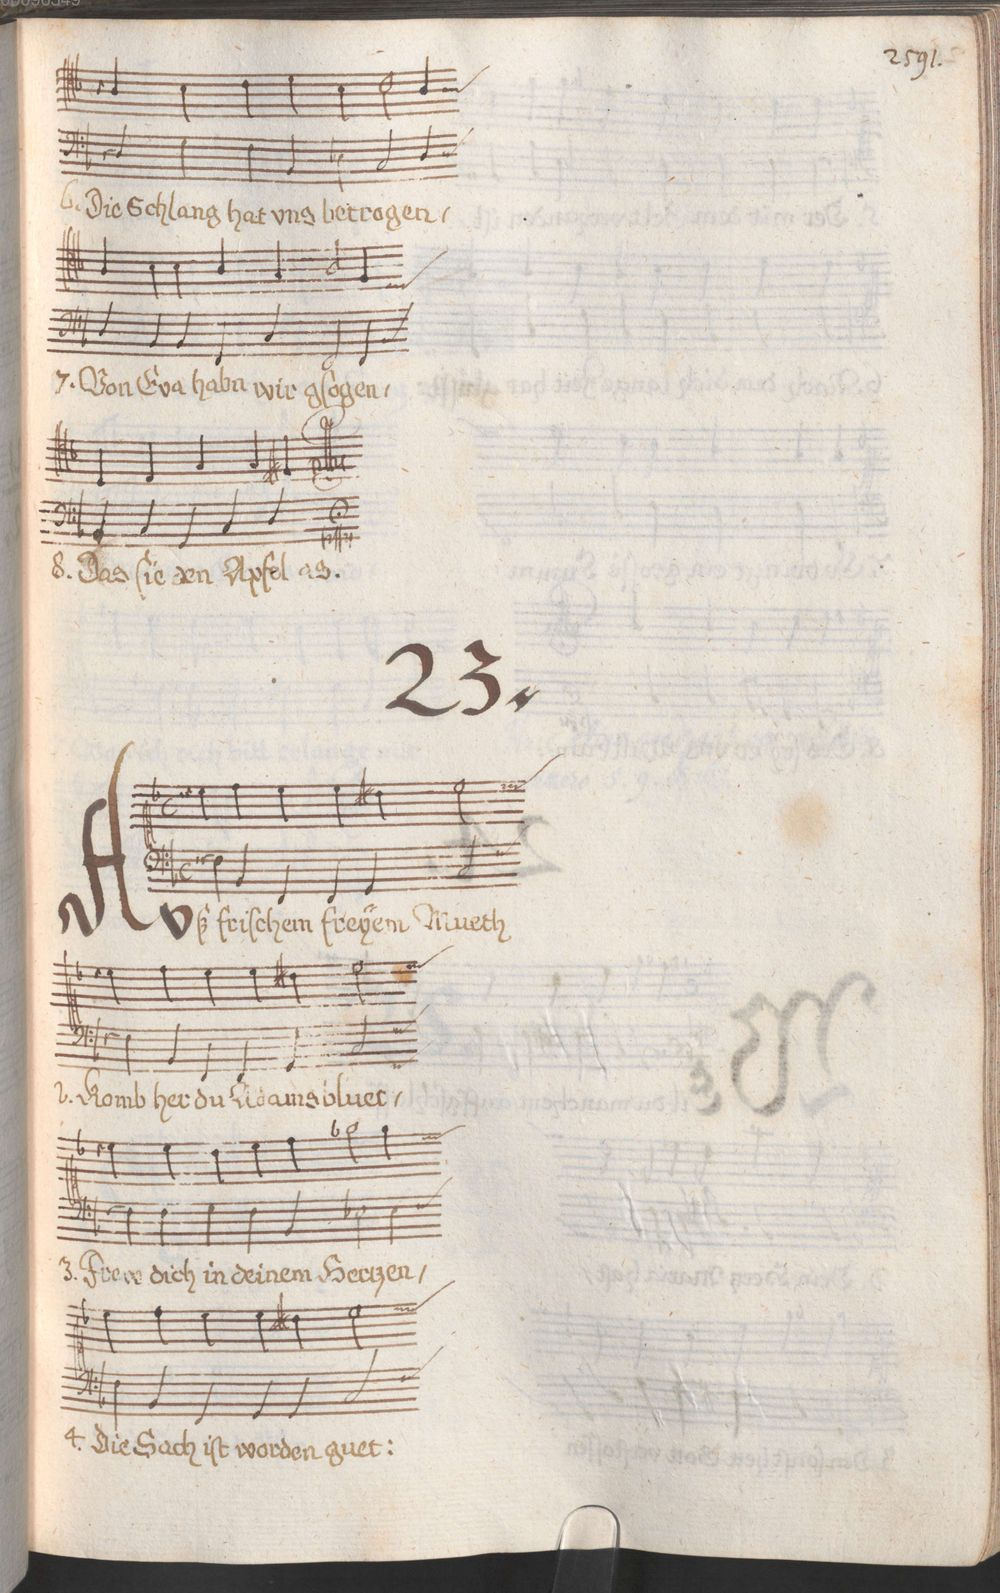 2591.
6. Die Schlang hat vns betrogen /
7. Von Eva habn wir gsogen /
8. Das sie den Apfel as.
23.
Avß frischem freÿem Mueth
2. Komb her du Adams bluet /
3. Frew dich in deinem Hertzen /
4. Die Sach ist worden guet: